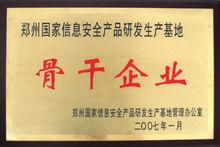 郑州国家信息安全产品研发生产基地
骨干企业
郑州国家信息安全产品研发生产基地管理办公室
二〇〇七年一月